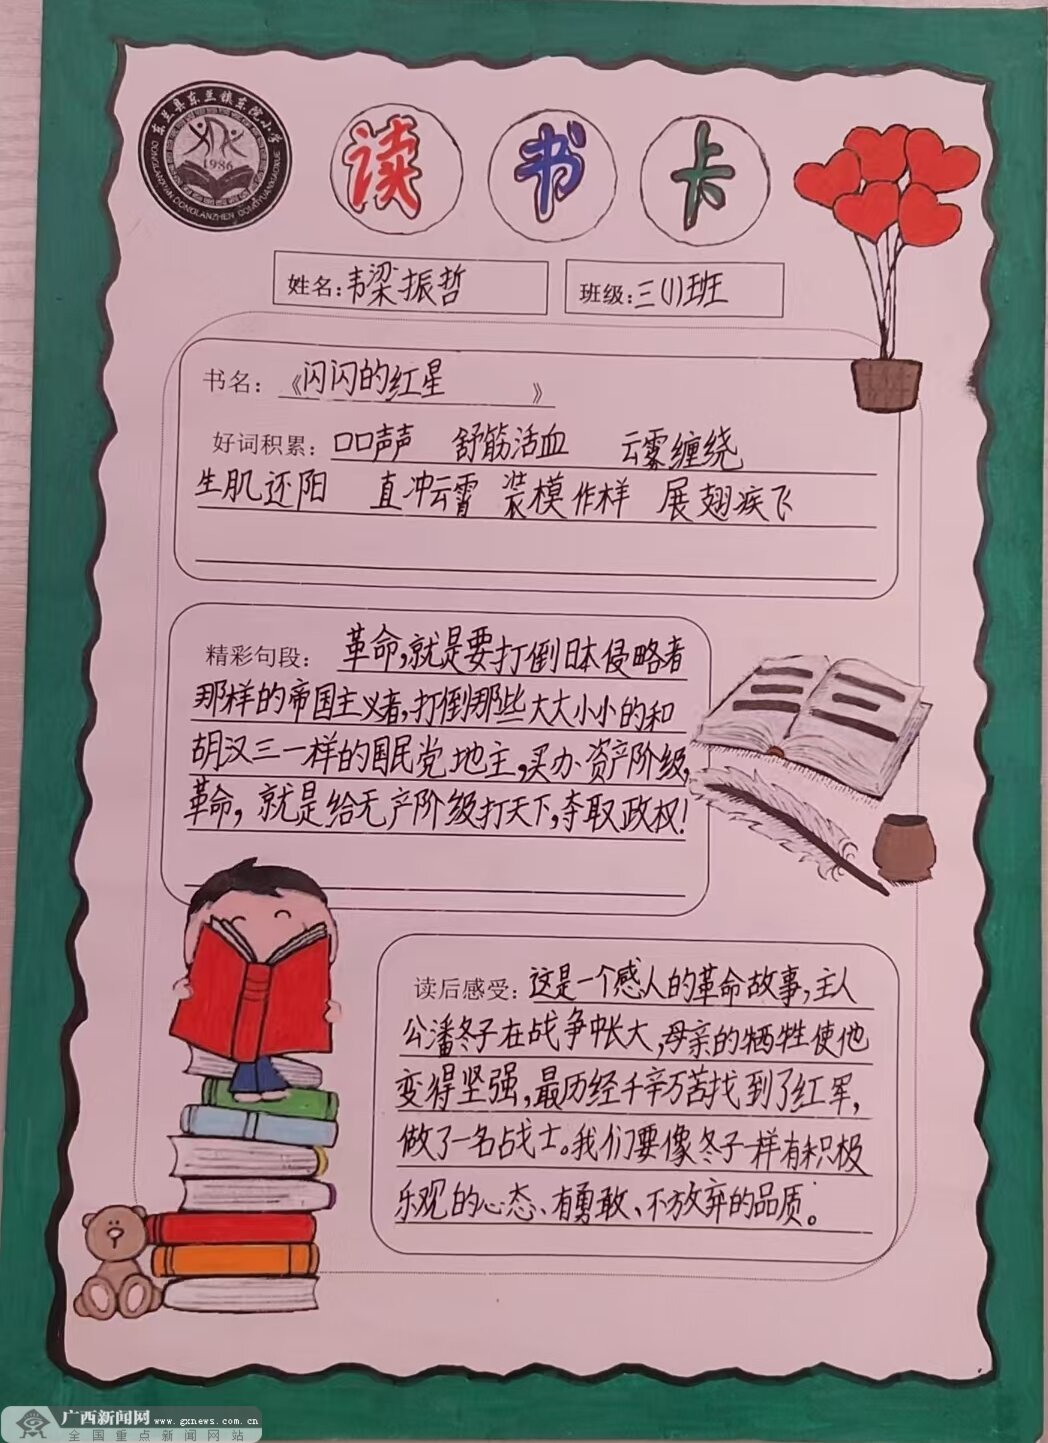 东兰县东兰镇东院小学
1986
DONGLANXIAN DONGLANZHEN DONGYUANXIAOXUE
读书卡
姓名:韦梁振哲
班级:三(1)班
书名:《闪闪的红星》
好词积累:口口声声 舒筋活血 云雾缠绕
生肌还阳 直冲云霄 装模作样 展翅疾飞
精彩句段: 革命,就是要打倒日本侵略者
那样的帝国主义者,打倒那些大大小小的和
胡汉三一样的国民党地主,买办资产阶级,
革命,就是给无产阶级打天下,夺取政权!
读后感受:这是一个感人的革命故事,主人
公潘冬子在战争中长大,母亲的牺牲使他
变得坚强,最历经千辛万苦找到了红军,
做了一名战士。我们要像冬子一样有积极
乐观的心态、有勇敢、不放弃的品质。
广西新闻网 www.gxnews.com.cn
全国重点新闻网站